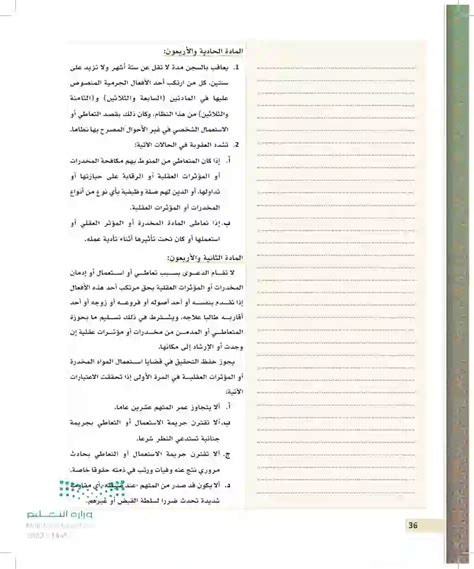 المادة الحادية والأربعون:
1. يعاقب بالسجن مدة لا تقل عن ستة أشهر ولا تزيد على
سنتين، كل من ارتكب أحد الأفعال الجرمية المنصوص
عليها في المادتين (السابعة والثلاثين) و(الثامنة
والثلاثين) من هذا النظام، وكان ذلك بقصد التعاطي أو
الاستعمال الشخصي في غير الأحوال المصرح بها نظاما.
2. تشدد العقوبة في الحالات الآتية:
أ. إذا كان المتعاطي من المنوط بهم مكافحة المخدرات
أو المؤثرات العقلية أو الرقابة على حيازتها أو
تداولها، أو الذين لهم صفة وظيفية بأي نوع من أنواع
المخدرات أو المؤثرات العقلية.
ب. إذا تعاطى المادة المخدرة أو المؤثر العقلي أو
استعملها أو كان تحت تأثيرها أثناء تأدية عمله.
المادة الثانية والأربعون:
لا تقام الدعوى بسبب تعاطي أو استعمال أو إدمان
المخدرات أو المؤثرات العقلية بحق مرتكب أحد هذه الأفعال
إذا تقدم بنفسه أو أحد أصوله أو فروعه أو زوجه أو أحد
أقاربه طالبا علاجه، ويشترط في ذلك تسليم ما بحوزة
المتعاطي أو المدمن من مخدرات أو مؤثرات عقلية إن
وجدت أو الإرشاد إلى مكانها.
يجوز حفظ التحقيق في قضايا استعمال المواد المخدرة
أو المؤثرات العقلية في المرة الأولى إذا تحققت الاعتبارات
الآتية:
أ. ألا يتجاوز عمر المتهم عشرين عاما.
ب. ألا تقترن جريمة الاستعمال أو التعاطي بجريمة
جنائية تستدعي النظر شرعا.
ج. ألا تقترن جريمة الاستعمال أو التعاطي بحادث
مروري نتج عنه وفيات ورتب في ذمته حقوقا خاصة.
د. ألا يكون قد صدر من المتهم عند ضبطه بأي مقاومة
شديدة تحدث ضررا لسلطة القبض أو غيرهم.
وزارة التعليم
36